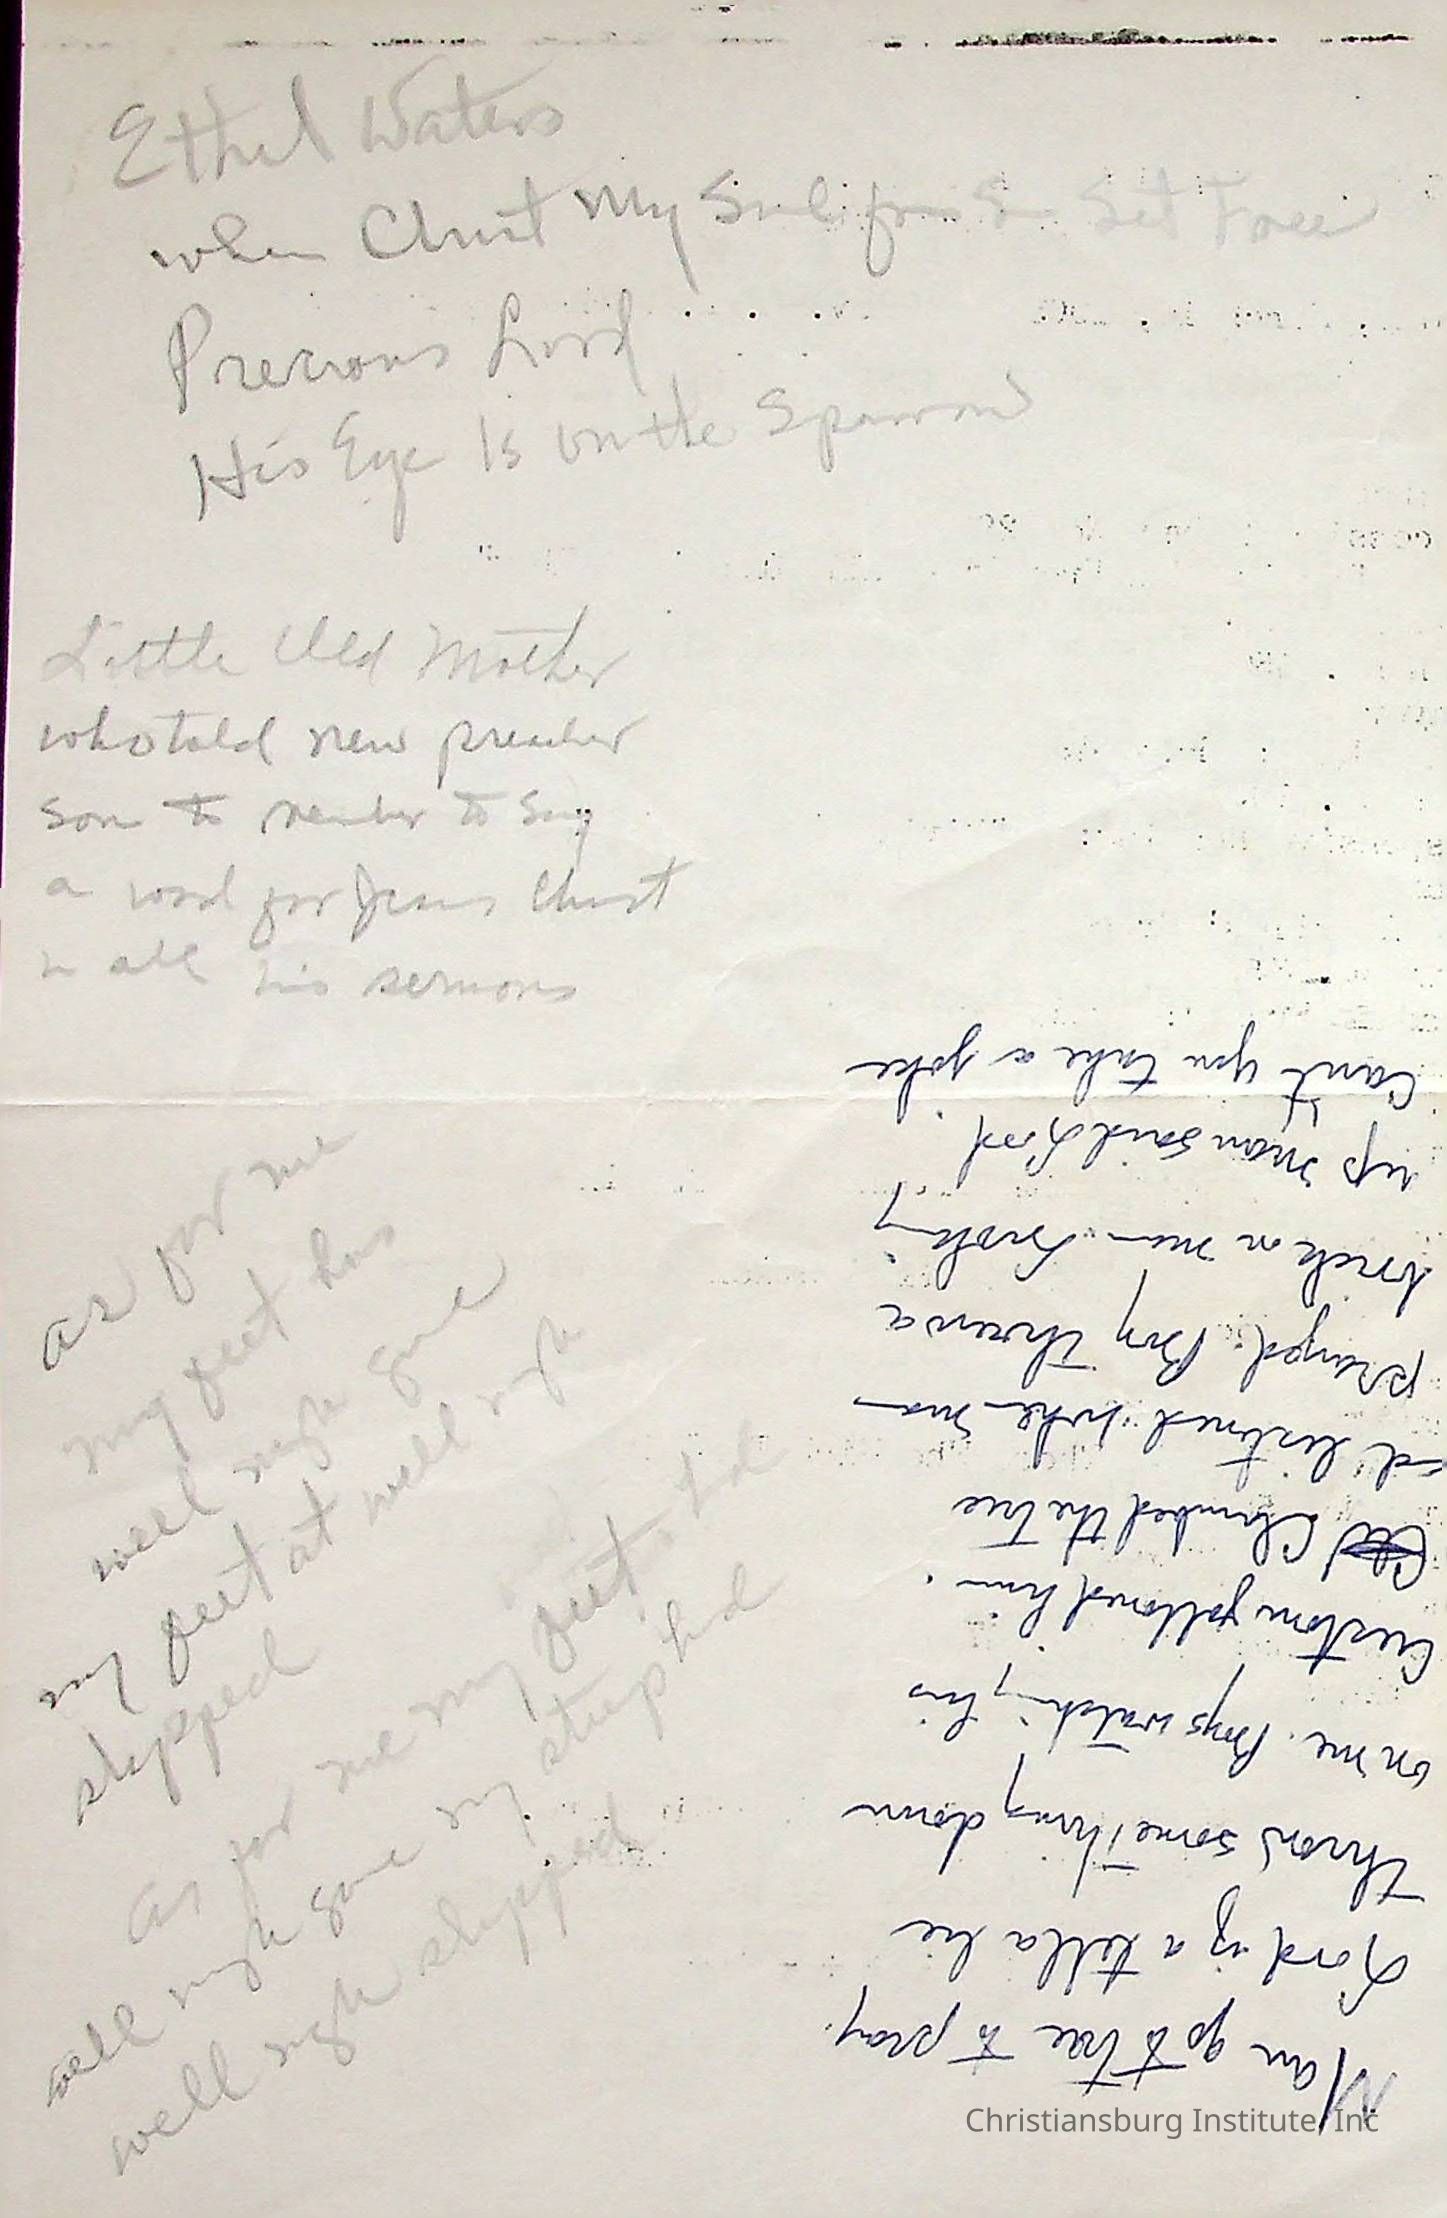 Ethel Waters
when Christ My Soul from Sin Set Free
Precious Lord
His Eye Is on the Sparrow
Little Old Mother
who told new preacher
son to remember to say
a word for Jesus Christ
in all his sermons
as for me
my feet has
well nigh gone
my feet at well nigh
slipped
as for me my feet had
well nigh gone my steps had
well nigh slipped
Man go to tree to pray.
Lord if a tell a lie
throw something down
on me. Boys watching his
Custom followed him.
Climbed the tree
and listened when man
prayed. Boy threw a
brick on man looking
up man said Lord
Can't you take a joke
Christiansburg Institute, Inc